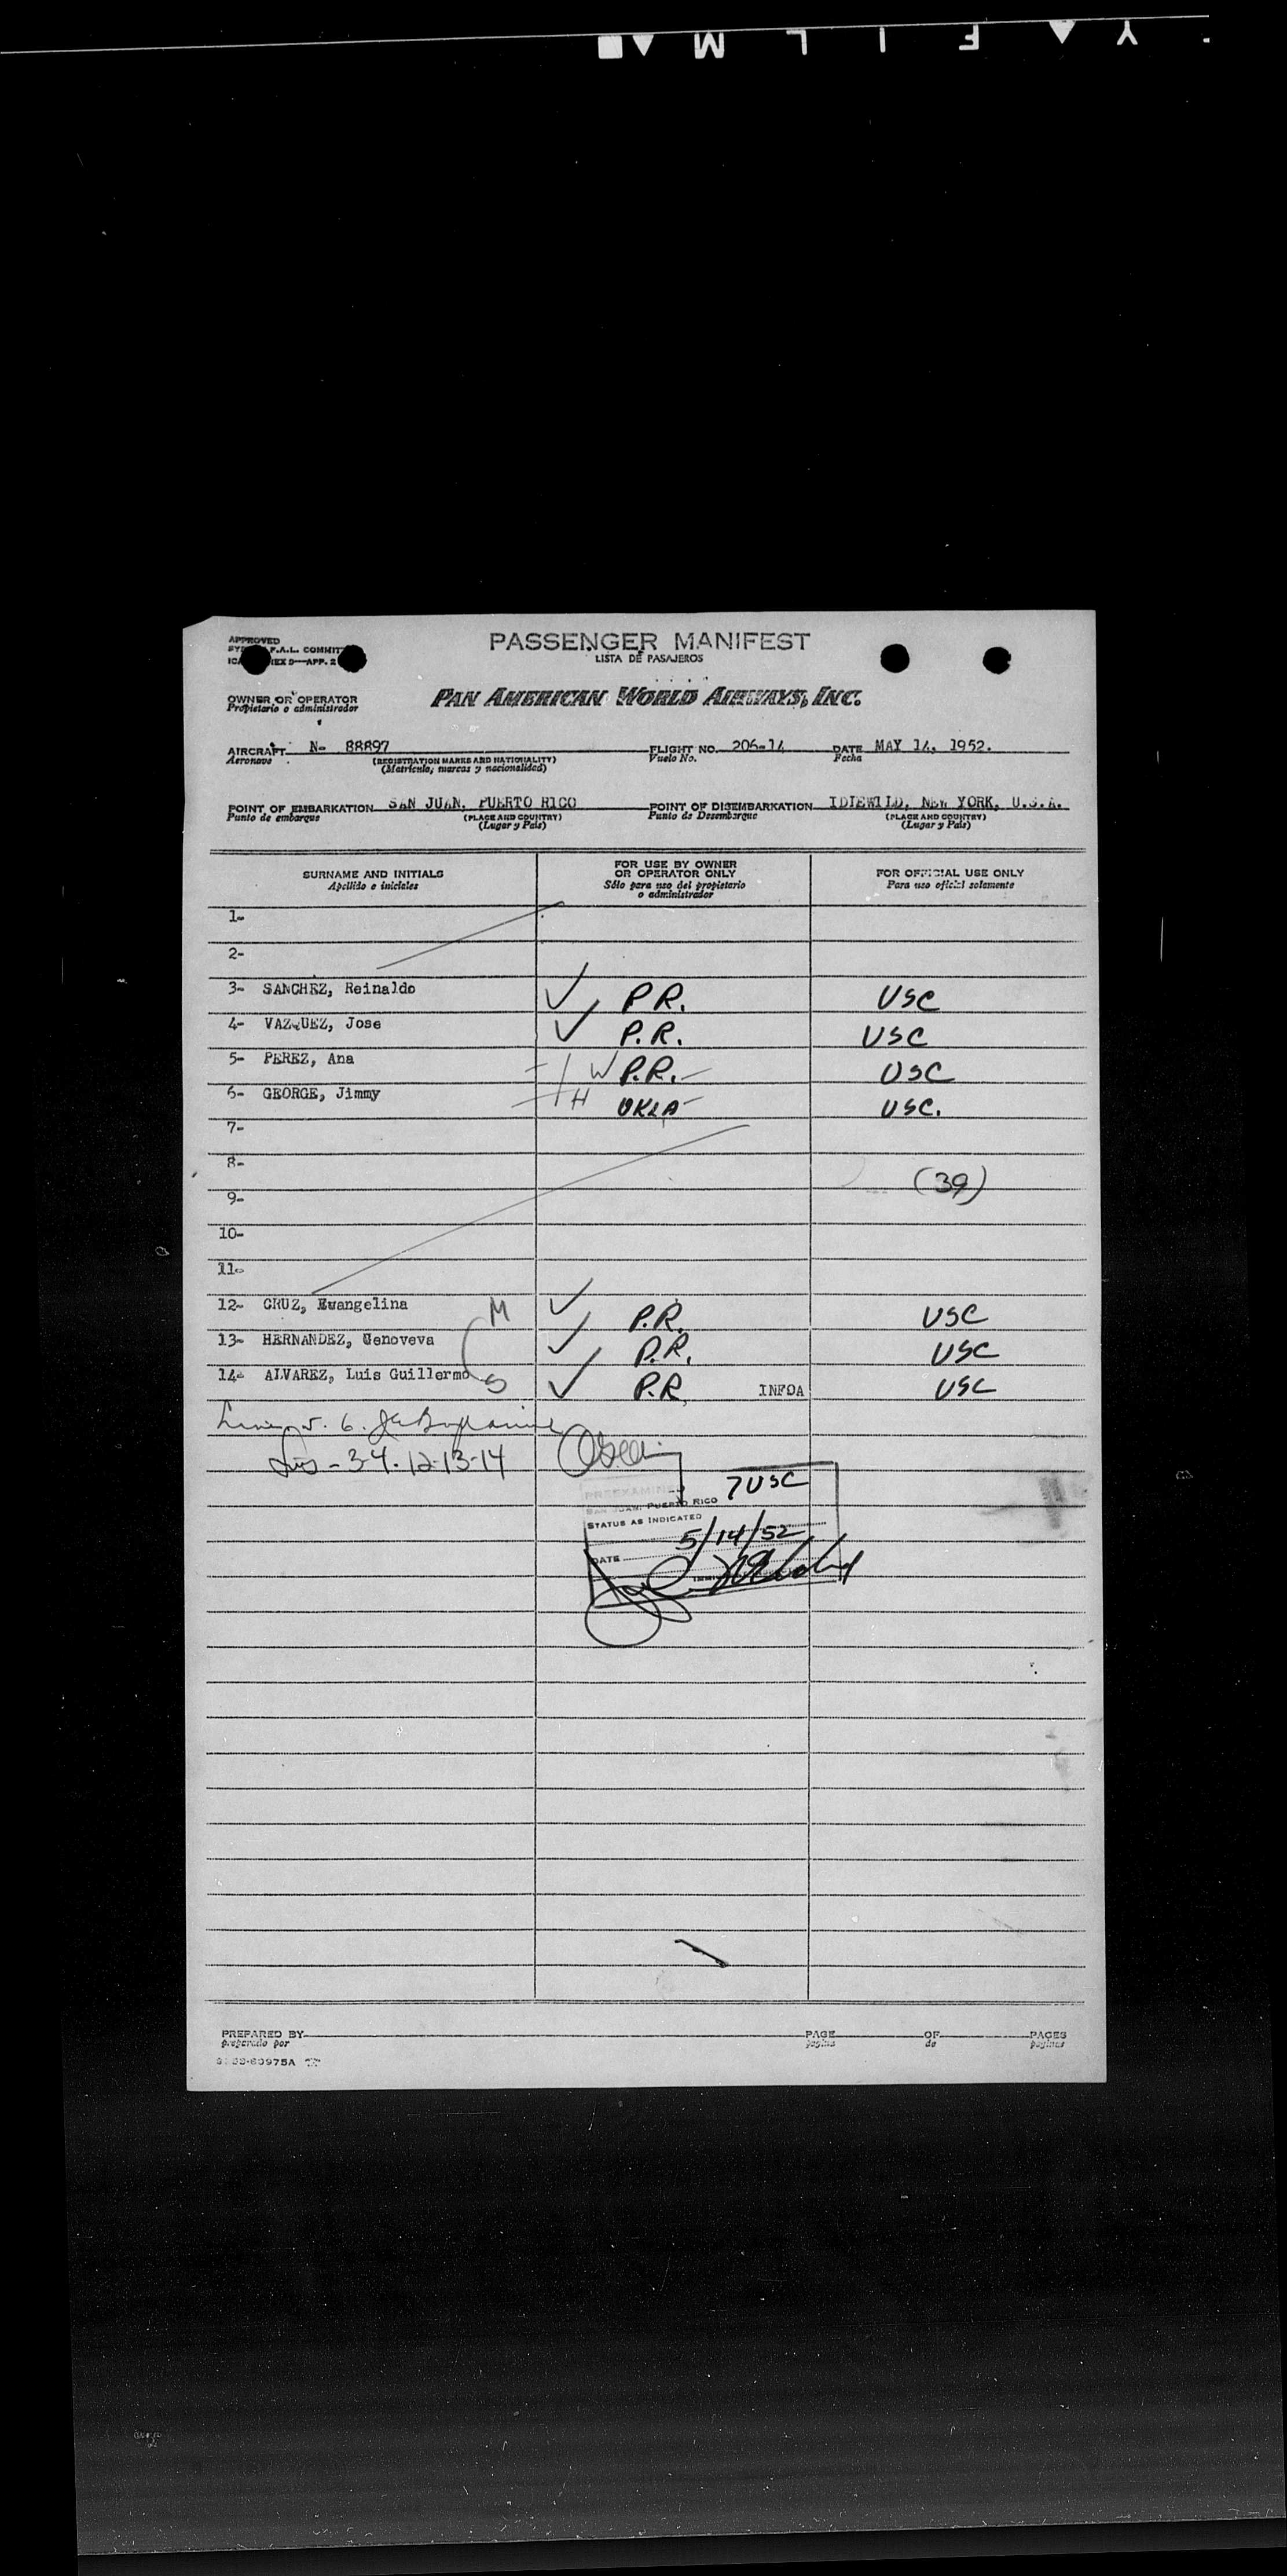 Y F I L M
APPROVED
F.A.L. COMMIT
EX 9—APP. 2
PASSENGER MANIFEST
LISTA DE PASAJEROS
OWNER OR OPERATOR
Propietario o administrador
PAN AMERICAN WORLD AIRWAYS, INC.
AIRCRAFT N- 88897 FLIGHT NO. 206-14 DATE MAY 14, 1952.
Aeronave (REGISTRATION MARKS AND NATIONALITY) Vuelo No. Fecha
(Matrícula, marcas y nacionalidad)
POINT OF EMBARKATION SAN JUAN, PUERTO RICO POINT OF DISEMBARKATION IDIEWILD, NEW YORK, U.S.A.
Punto de embarque (PLACE AND COUNTRY) Punto de Desembarque (PLACE AND COUNTRY)
(Lugar y País) (Lugar y País)
SURNAME AND INITIALS FOR USE BY OWNER OR OPERATOR ONLY FOR OFFICIAL USE ONLY
Apellido e iniciales Sólo para uso del propietario o administrador Para uso oficial solamente
1-
2-
3- SANCHEZ, Reinaldo P.R. USC
4- VAZQUEZ, Jose P.R. USC
5- PEREZ, Ana W P.R. USC
6- GEORGE, Jimmy H OKLA USC.
7-
8-
(39)
9-
10-
11-
12- CRUZ, Ewangelina M P.R. USC
13- HERNANDEZ, Genoveva P.R. USC
14- ALVAREZ, Luis Guillermo S P.R. INFOA USC
3-4-12-13-14
PREEXAMINED 7 USC
SAN JUAN, PUERTO RICO
STATUS AS INDICATED
DATE 5/14/52
PREPARED BY PAGE OF PAGES
preparado por página de páginas